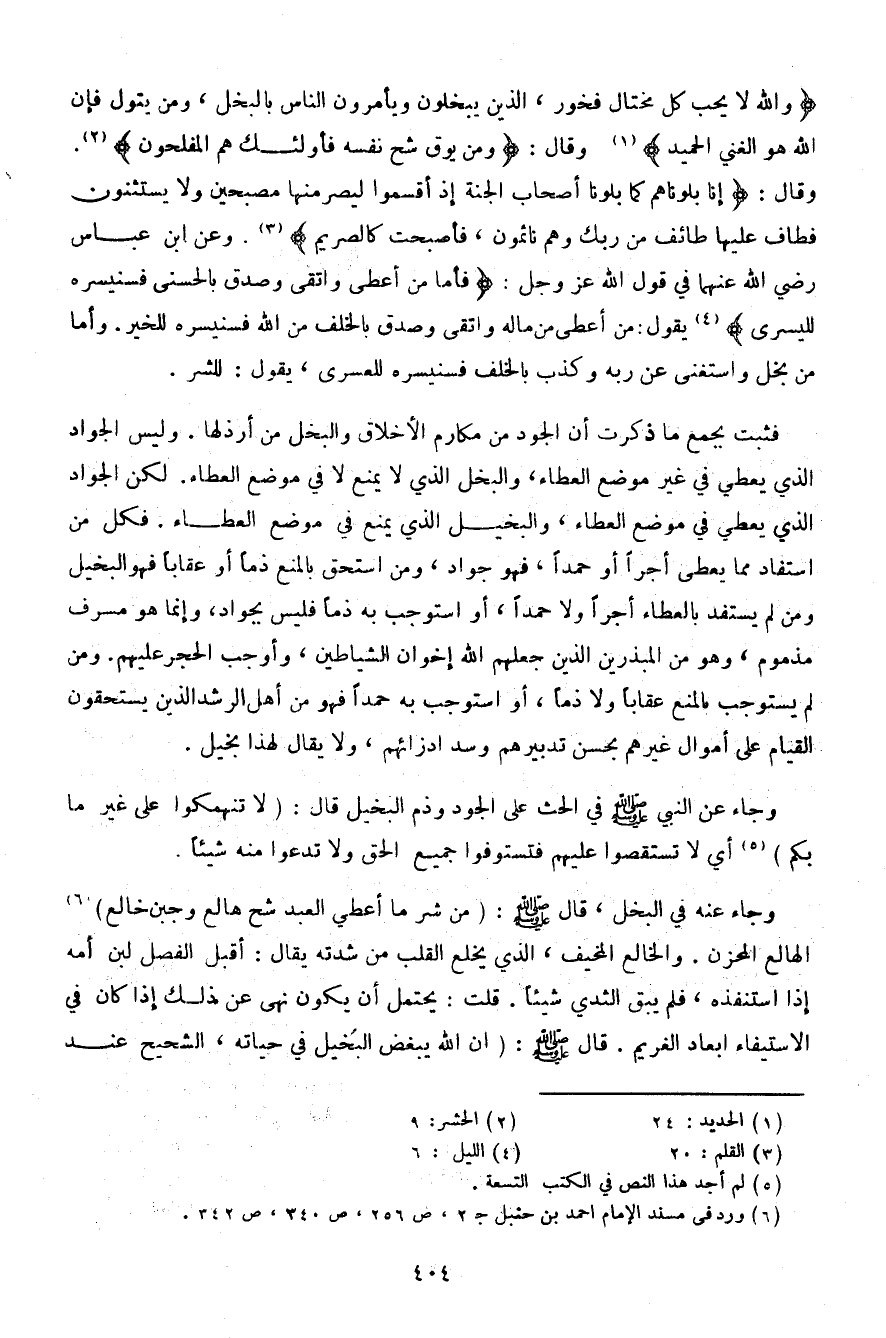 ﴿ والله لا يحب كل مختال فخور ، الذين يبخلون ويأمرون الناس بالبخل ، ومن يتول فإن
الله هو الغني الحميد ﴾ (١) وقال : ﴿ ومن يوق شح نفسه فأولئك هم المفلحون ﴾ (٢).
وقال : ﴿ إنا بلوناهم كما بلونا أصحاب الجنة إذ أقسموا ليصرمنها مصبحين ولا يستثنون
فطاف عليها طائف من ربك وهم نائمون ، فأصبحت كالصريم ﴾ (٣) . وعن ابن عباس
رضي الله عنهما في قول الله عز وجل : ﴿ فأما من أعطى واتقى وصدق بالحسنى فسنيسره
لليسرى ﴾ (٤) يقول : من أعطى من ماله واتقى وصدق بالخلف من الله فسنيسره للخير . وأما
من بخل واستغنى عن ربه وكذب بالخلف فسنيسره للعسرى ، يقول : للشر .
فثبت بجمع ما ذكرت أن الجود من مكارم الأخلاق والبخل من أرذلها . وليس الجواد
الذي يعطي في غير موضع العطاء ، والبخل الذي لا يمنع لا في موضع العطاء . لكن الجواد
الذي يعطي في موضع العطاء ، والبخيل الذي يمنع في موضع العطاء . فكل من
استفاد مما يعطى أجراً أو حمداً ، فهو جواد ، ومن استحق بالمنع ذماً أو عقاباً فهو البخيل
ومن لم يستفد بالعطاء أجراً ولا حمداً ، أو استوجب به ذماً فليس بجواد ، وإنما هو مسرف
مذموم ، وهو من المبذرين الذين جعلهم الله إخوان الشياطين ، وأوجب الحجر عليهم . ومن
لم يستوجب بالمنع عقاباً ولا ذماً ، أو استوجب به حمداً فهو من أهل الرشد الذين يستحقون
القيام على أموال غيرهم بحسن تدبيرهم وسد ادزائهم ، ولا يقال لهذا بخيل .
وجاء عن النبي ﷺ في الحث على الجود وذم البخيل قال : ( لا تنهمكوا على غير ما
بكم ) (٥) أي لا تستقصوا عليهم فتستوفوا جميع الحق ولا تدعوا منه شيئاً .
وجاء عنه في البخل ، قال ﷺ : ( من شر ما أعطي العبد شح هالع وجبن خالع ) (٦)
الهالع المحزن . والخالع المخيف ، الذي يخلع القلب من شدته يقال : أقبل الفصل لبن أمه
إذا استنفذه ، فلم يبق الثدي شيئاً . قلت : يحتمل أن يكون نهى عن ذلك إذا كان في
الاستيفاء ابعاد الغريم . قال ﷺ : ( ان الله يبغض البخيل في حياته ، الشحيح عند
(١) الحديد : ٢٤ (٢) الحشر : ٩
(٣) القلم : ٢٠ (٤) الليل : ٦
(٥) لم أجد هذا النص في الكتب التسعة .
(٦) ورد في مسند الإمام احمد بن حنبل ج ٢ ، ص ٢٥٦ ، ص ٣٤٠ ، ص ٣٤٢ .
٤٠٤